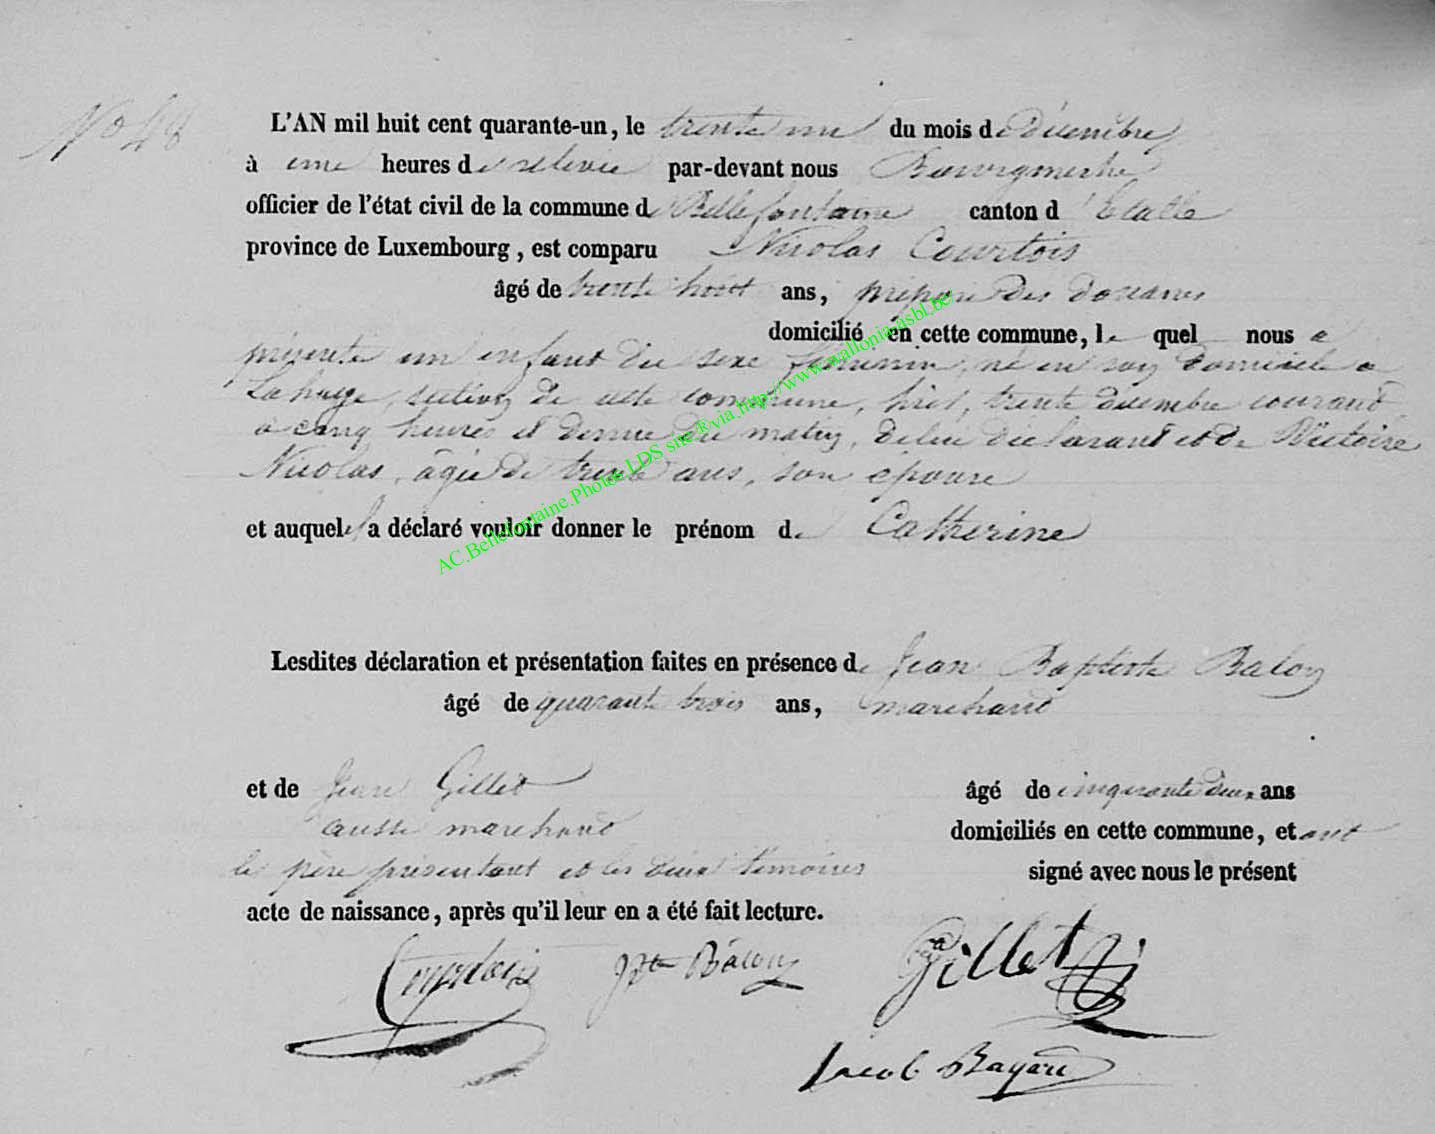 No 48
L'AN mil huit cent quarante-un, le trente un du mois de Décembre
à une heures de relevée par-devant nous Bourgmestre
officier de l'état civil de la commune de Bellefontaine canton d'Etalle
province de Luxembourg, est comparu Nicolas Courtois
âgé de trente huit ans, préposé des douanes
domicilié en cette commune, lequel nous a
présenté un enfant du sexe féminin, né en son domicile a
Lahage, section de cette commune, hier, trente décembre courant
a cinq heures et demie du matin, de lui déclarant et de Victoire
Nicolas, âgée de trente ans, son épouse
et auquel il a déclaré vouloir donner le prénom de Catherine
Lesdites déclaration et présentation faites en présence de Jean Baptiste Balon
âgé de quarante trois ans, marchand
et de Jean Gillet âgé de cinquante deux ans
aussi marchand domiciliés en cette commune, et ont
le père présentant et les deux témoins signé avec nous le présent
acte de naissance, après qu'il leur en a été fait lecture.
Courtois JBte Balon Gillet
Jacob Bayard
AC.Bellefontaine.Photos LDS site ®via http://www.wallonia-asbl.be